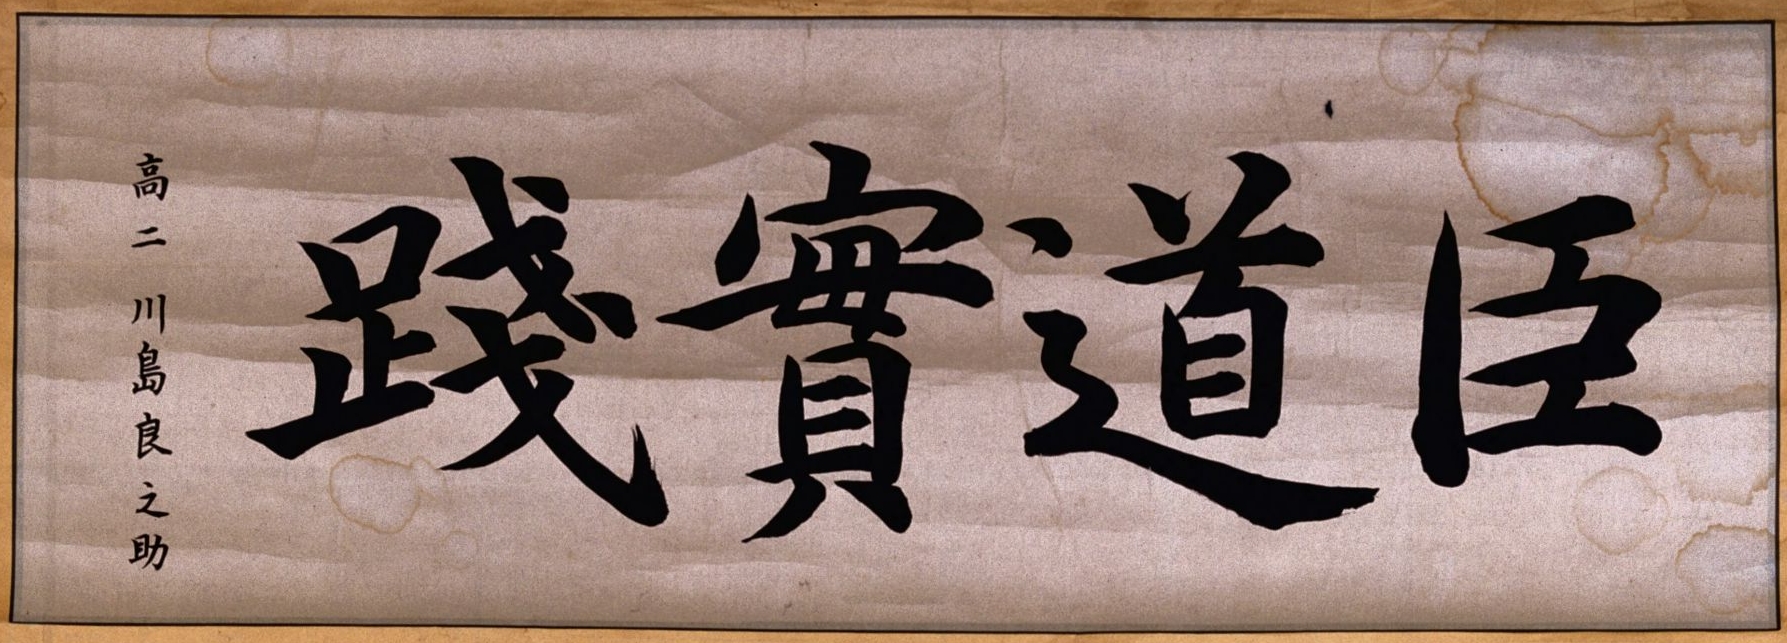 臣道實踐
高二 川島良之助